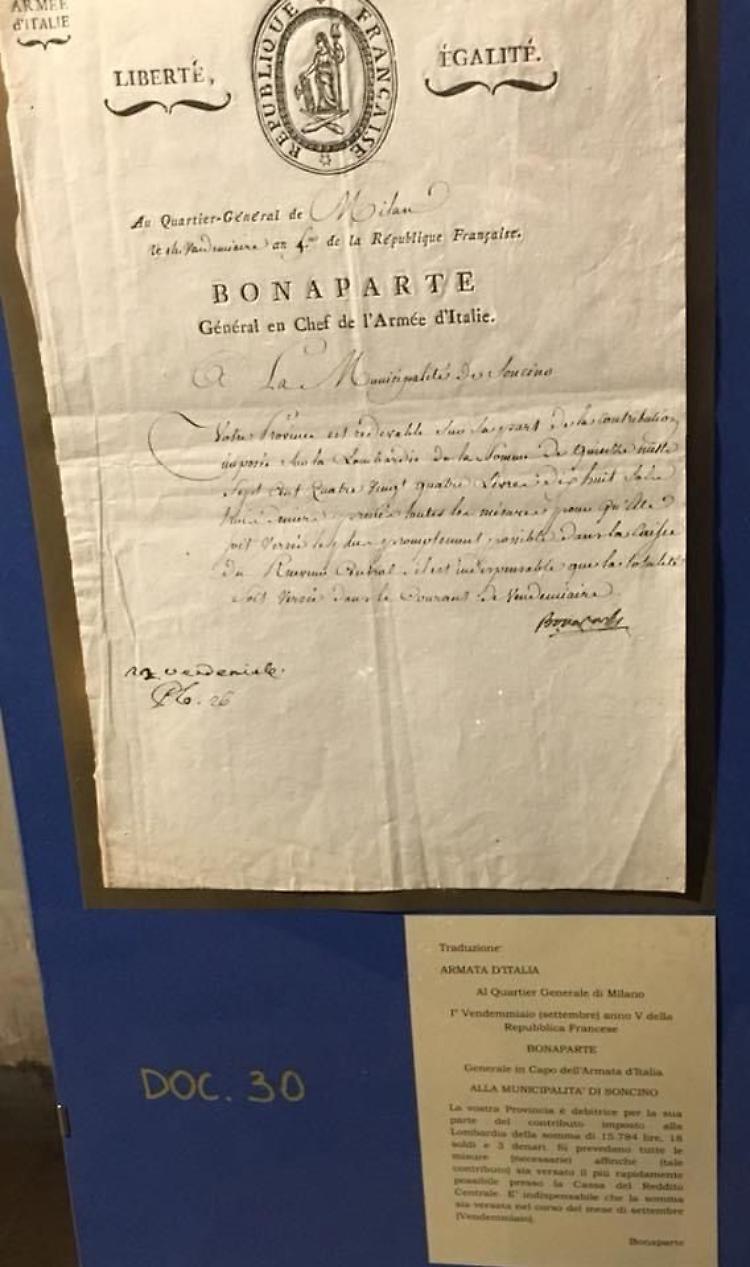 ARMÉE
d'ITALIE
LIBERTÉ,
RÉPUBLIQUE FRANÇAISE
ÉGALITÉ.
Au Quartier-Général de Milan
le Vendemiaire an de la République Française.
BONAPARTE
Général en Chef de l'Armée d'Italie.
A La Municipalité De Soncino
Votre Province est redevable sur sa part de la Contribution
imposée sur la Lombardie de la Somme De Quinze mille
Sept Cent Quatre Vingt quatre Livres dix huit Sols
trois deniers prenés toutes les mesures pour qu'Elle
soit Versée le plus promptement possible dans la Caisse
du Revenu Central il est indispensable que la totalité
soit Versée dans le Courant de Vendemiaire
Bonaparte
26
DOC. 30
Traduzione:
ARMATA D'ITALIA
Al Quartier Generale di Milano
I° Vendemmiaio (settembre) anno V della
Repubblica Francese
BONAPARTE
Generale in Capo dell'Armata d'Italia
ALLA MUNICIPALITA' DI SONCINO
La vostra Provincia è debitrice per la sua
parte del contributo imposto alla
Lombardia della somma di 15.784 lire, 18
soldi e 3 denari. Si prevedano tutte le
misure (necessarie) affinché (tale
contributo) sia versato il più rapidamente
possibile presso la Cassa del Reddito
Centrale. E' indispensabile che la somma
sia versata nel corso del mese di settembre
(Vendemmiaio).
Bonaparte